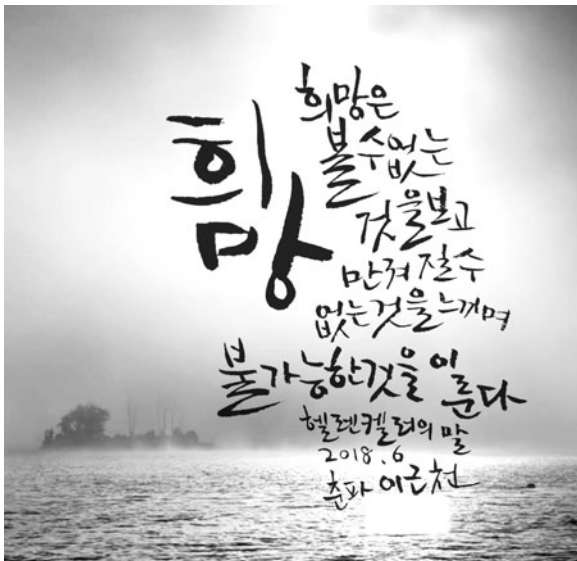 희망
희망은
볼수없는
것을보고
만져질수
없는것을느끼며
불가능한것을 이룬다
헬렌켈러의 말
2018.6
춘파 이근천